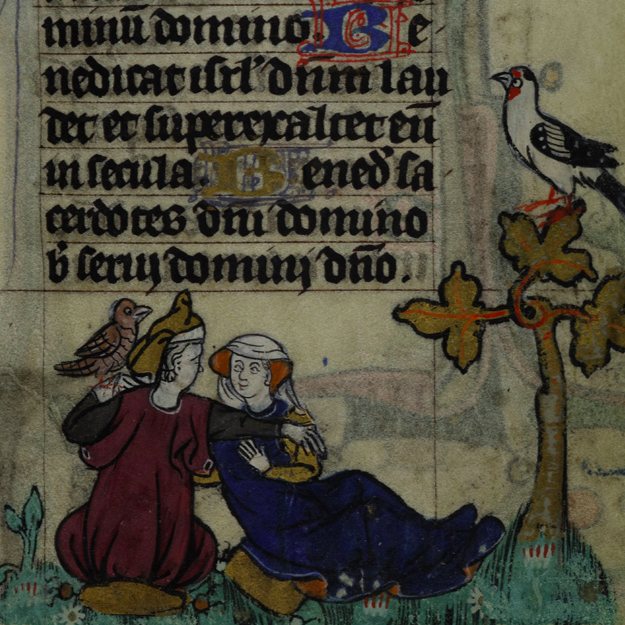 minū domino. Be
nedicat isrl' dnm lau
det et superexaltet eū
in secula. Bened' sa
cerdotes dni domino
b' serui domini dno.